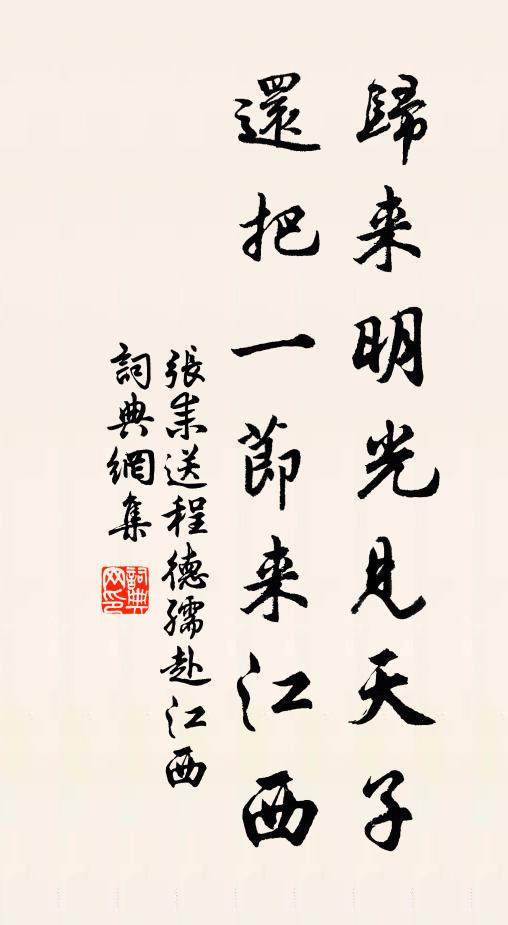 歸来明光見天子
還把一節来江西
張耒送程德孺赴江西
詞典網集
詞典
网印